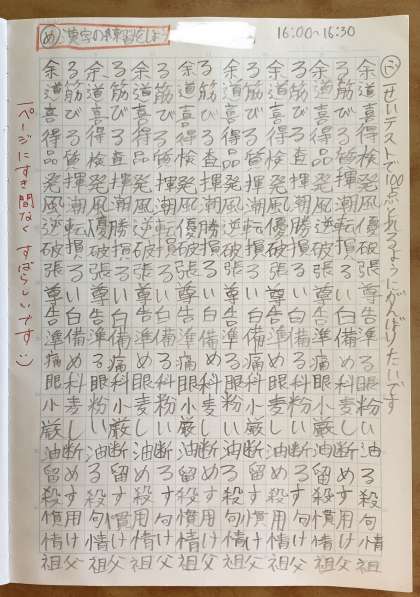 め 漢字の練習をしよう
16:00~16:30
余る余る余る余る余る余る余る余
道筋道筋道筋道筋道筋道筋道筋道
喜び喜び喜び喜び喜び喜び喜び喜
得る得る得る得る得る得る得る得
品質検査品質検査品質検査品質検
発揮発揮発揮発揮発揮発揮発揮発
風潮風潮風潮風潮風潮風潮風潮風
逆転優勝逆転優勝逆転優勝逆転優
破損破損破損破損破損破損破損破
張る張る張る張る張る張る張る張
尊い尊い尊い尊い尊い尊い尊い尊
告白告白告白告白告白告白告白告
準備準備準備準備準備準備準備準
痛める痛める痛める痛める痛める
眼科眼科眼科眼科眼科眼科眼科眼
小麦粉小麦粉小麦粉小麦粉小麦粉
厳しい厳しい厳しい厳しい厳しい
油断油断油断油断油断油断油断油
留める留める留める留める留める
殺す殺す殺す殺す殺す殺す殺す殺
慣用句慣用句慣用句慣用句慣用句
情け情け情け情け情け情け情け情
祖父祖父祖父祖父祖父祖父祖父祖
ふ 一せいテストで100点とれるようにがんばりたいです
一ページにすき間なく すばらしいです :)